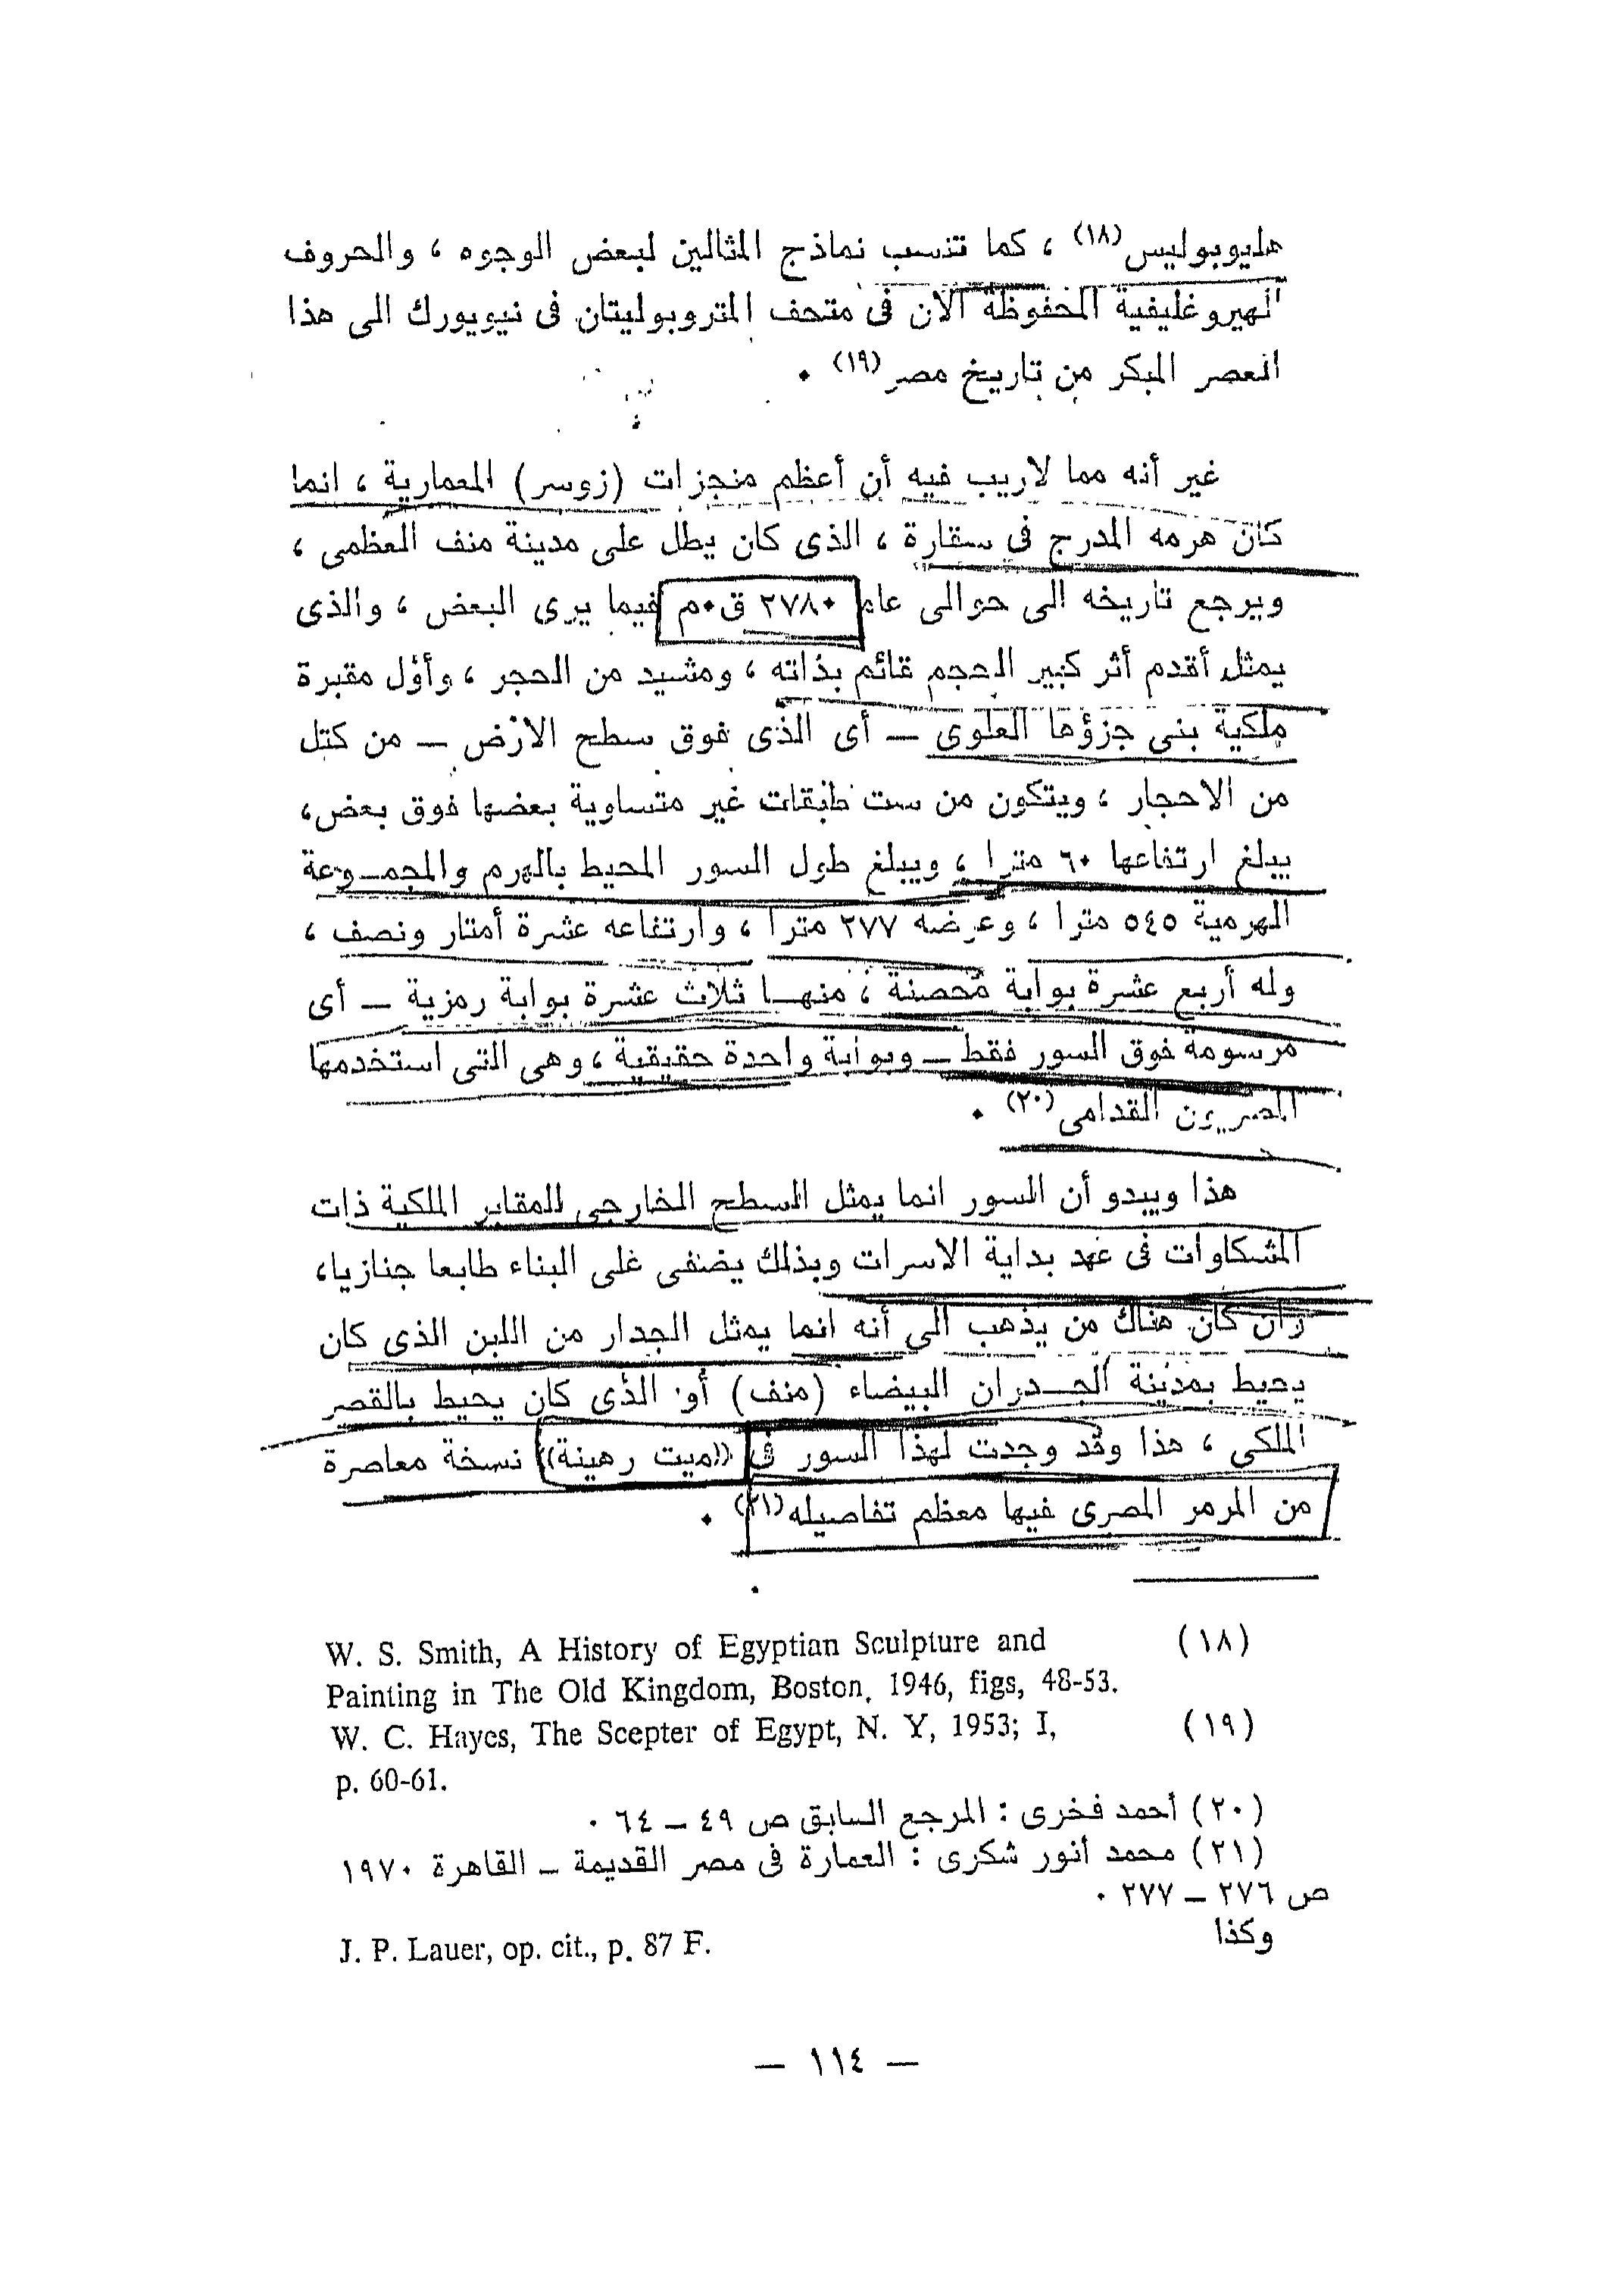 هليوبوليس(١٨) ، كما تنسب نماذج المثالين لبعض الوجوه ، والحروف
الهيروغليفية المحفوظة الآن فى متحف المتروبوليتان فى نيويورك الى هذا
العصر المبكر من تاريخ مصر(١٩) ٠
غير أنه مما لاريب فيه أن أعظم منجزات (زوسر) المعمارية ، انما
كان هرمه المدرج فى سقارة ، الذى كان يطل على مدينة منف العظمى ،
ويرجع تاريخه الى حوالى عام ٢٧٨٠ ق٠م فيما يرى البعض ، والذى
يمثل أقدم أثر كبير الحجم قائم بذاته ، ومشيد من الحجر ، وأول مقبرة
ملكية بنى جزؤها العلوى – أى الذى فوق سطح الارض – من كتل
من الاحجار ، ويتكون من ست طبقات غير متساوية بعضها فوق بعض،
يبلغ ارتفاعها ٦٠ مترا ، ويبلغ طول السور المحيط بالهرم والمجمـوعة
الهرمية ٥٤٥ مترا ، وعرضه ٢٧٧ مترا ، وارتفاعه عشرة أمتار ونصف ،
وله أربع عشرة بوابة محصنة ، منهـا ثلاث عشرة بوابة رمزية – أى
مرسومة فوق السور فقط – وبوابة واحدة حقيقية ، وهى التى استخدمها
المصريون القدامى(٢٠) ٠
هذا ويبدو أن السور انما يمثل السطح الخارجى للمقابر الملكية ذات
المشكاوات فى عهد بداية الاسرات وبذلك يضفى على البناء طابعا جنازيا،
وان كان هناك من يذهب الى أنه انما يمثل الجدار من اللبن الذى كان
يحيط بمدينة الجـدران البيضاء (منف) أو الذى كان يحيط بالقصر
الملكى ، هذا وقد وجدت لهذا السور فى ((ميت رهينة)) نسخة معاصرة
من المرمر المصرى فيها معظم تفاصيله(٢١) ٠
(١٨) W. S. Smith, A History of Egyptian Sculpture and
Painting in The Old Kingdom, Boston, 1946, figs, 48-53.
(١٩) W. C. Hayes, The Scepter of Egypt, N. Y, 1953; I,
p. 60-61.
(٢٠) أحمد فخرى : المرجع السابق ص ٤٩ – ٦٤ ٠
(٢١) محمد أنور شكرى : العمارة فى مصر القديمة – القاهرة ١٩٧٠
ص ٢٧٦ – ٢٧٧ ٠
وكذا
J. P. Lauer, op. cit., p. 87 F.
– ١١٤ –